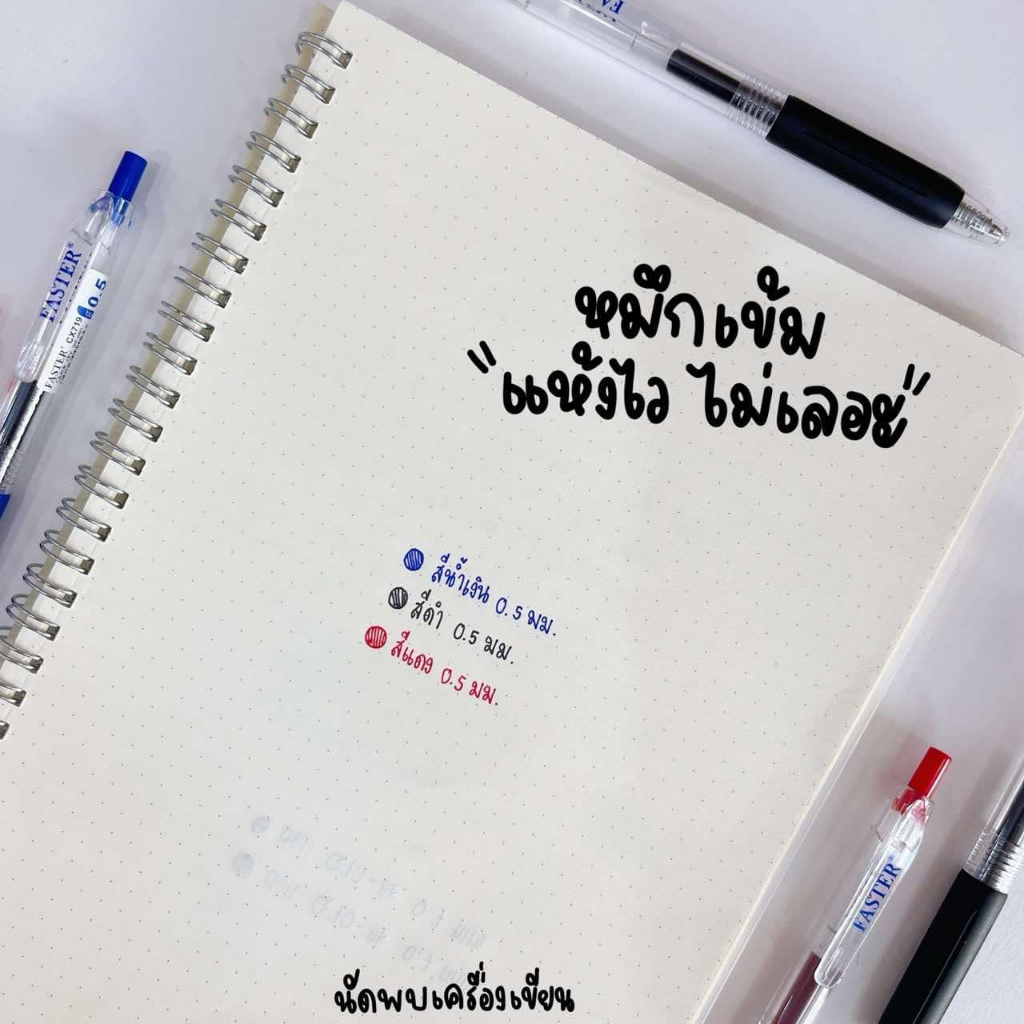 หมึกเข้ม
"แห้งไว ไม่เลอะ"
สีน้ำเงิน 0.5 มม.
สีดำ 0.5 มม.
สีแดง 0.5 มม.
นัดพบเครื่องเขียน
FASTER®
FASTER® CX719
0.5
FASTER®